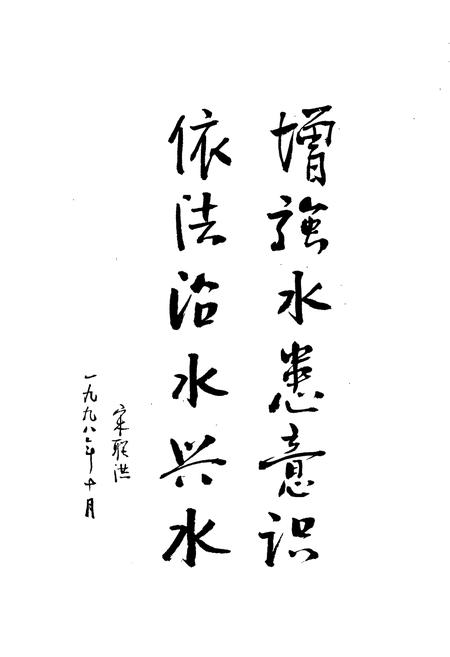 增强水患意识
依法治水兴水
宋联洪
一九九八年十月